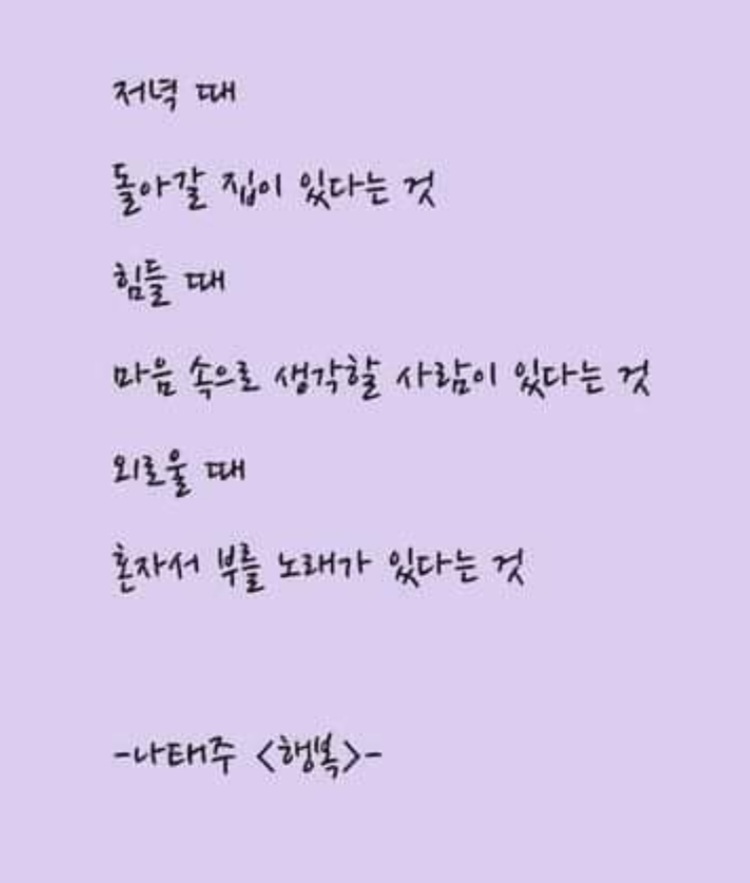 저녁 때
돌아갈 집이 있다는 것
힘들 때
마음 속으로 생각할 사람이 있다는 것
외로울 때
혼자서 부를 노래가 있다는 것
-나태주 <행복>-